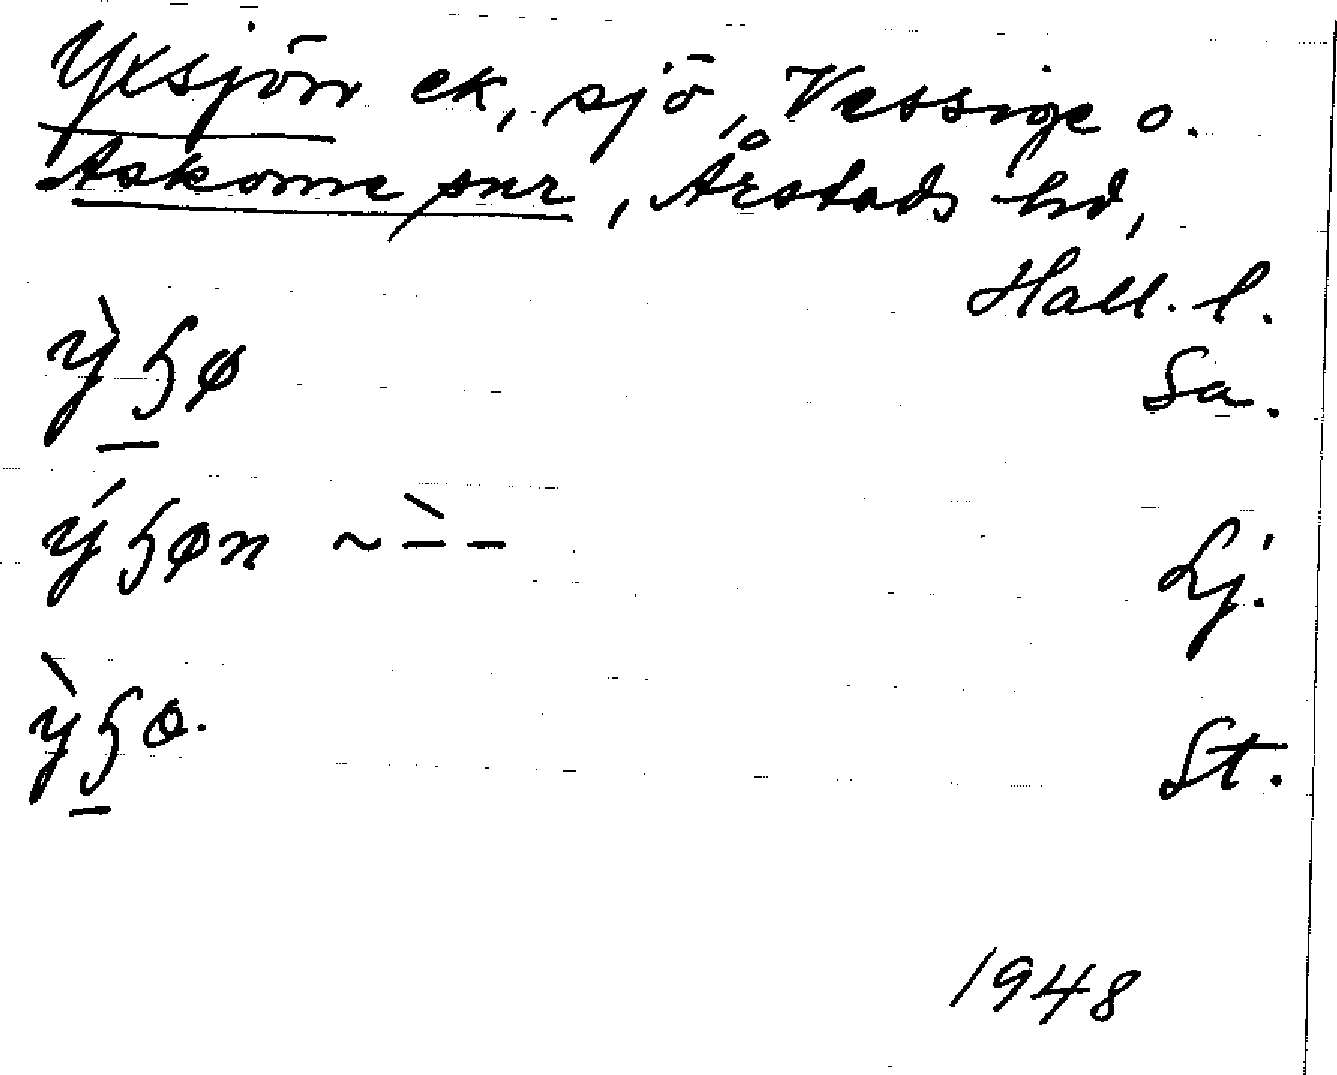 Yxsjön ek, sjö, Vessige o.
Askome snr, Årstads hd,
Hall. l.
ỳꞕø Sa.
ýꞕøn ~ ̀– – Lj.
ỳꞕo. St.
1948